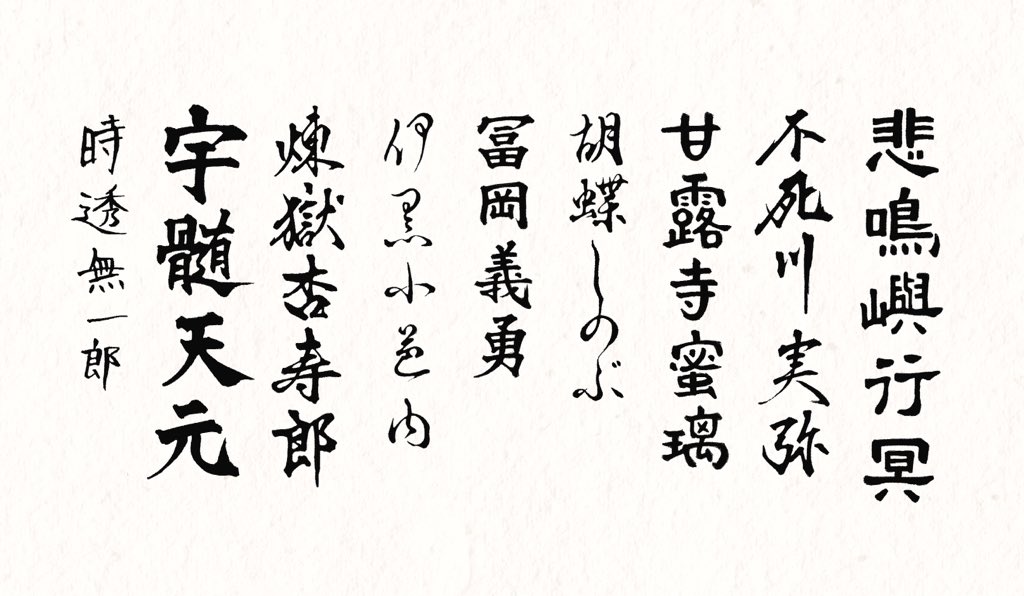 悲鳴嶼行冥
不死川実弥
甘露寺蜜璃
胡蝶しのぶ
冨岡義勇
伊黒小芭内
煉獄杏寿郎
宇髄天元
時透無一郎